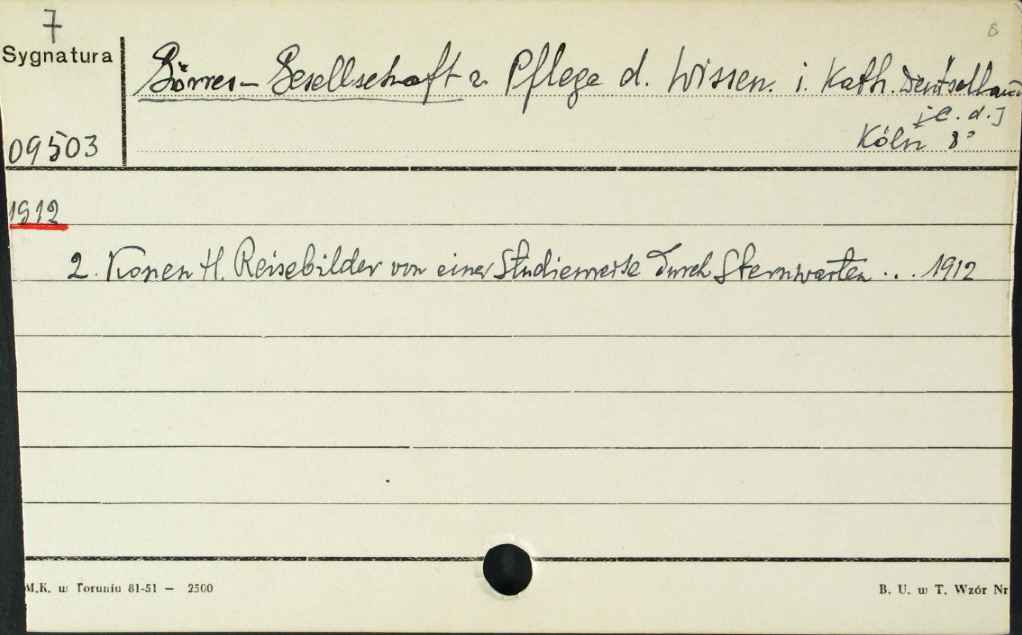 7
8
Sygnatura
Görres-Gesellschaft z. Pflege d. Wissen. i. Kath. Deutschland
[C. d.]
09503
Köln 8°
1912
2. Konen H. Reisebilder von einer Studienreise durch Sternwarten ... 1912
M.K. w Toruniu 81-51 — 2500
B. U. w T. Wzór Nr